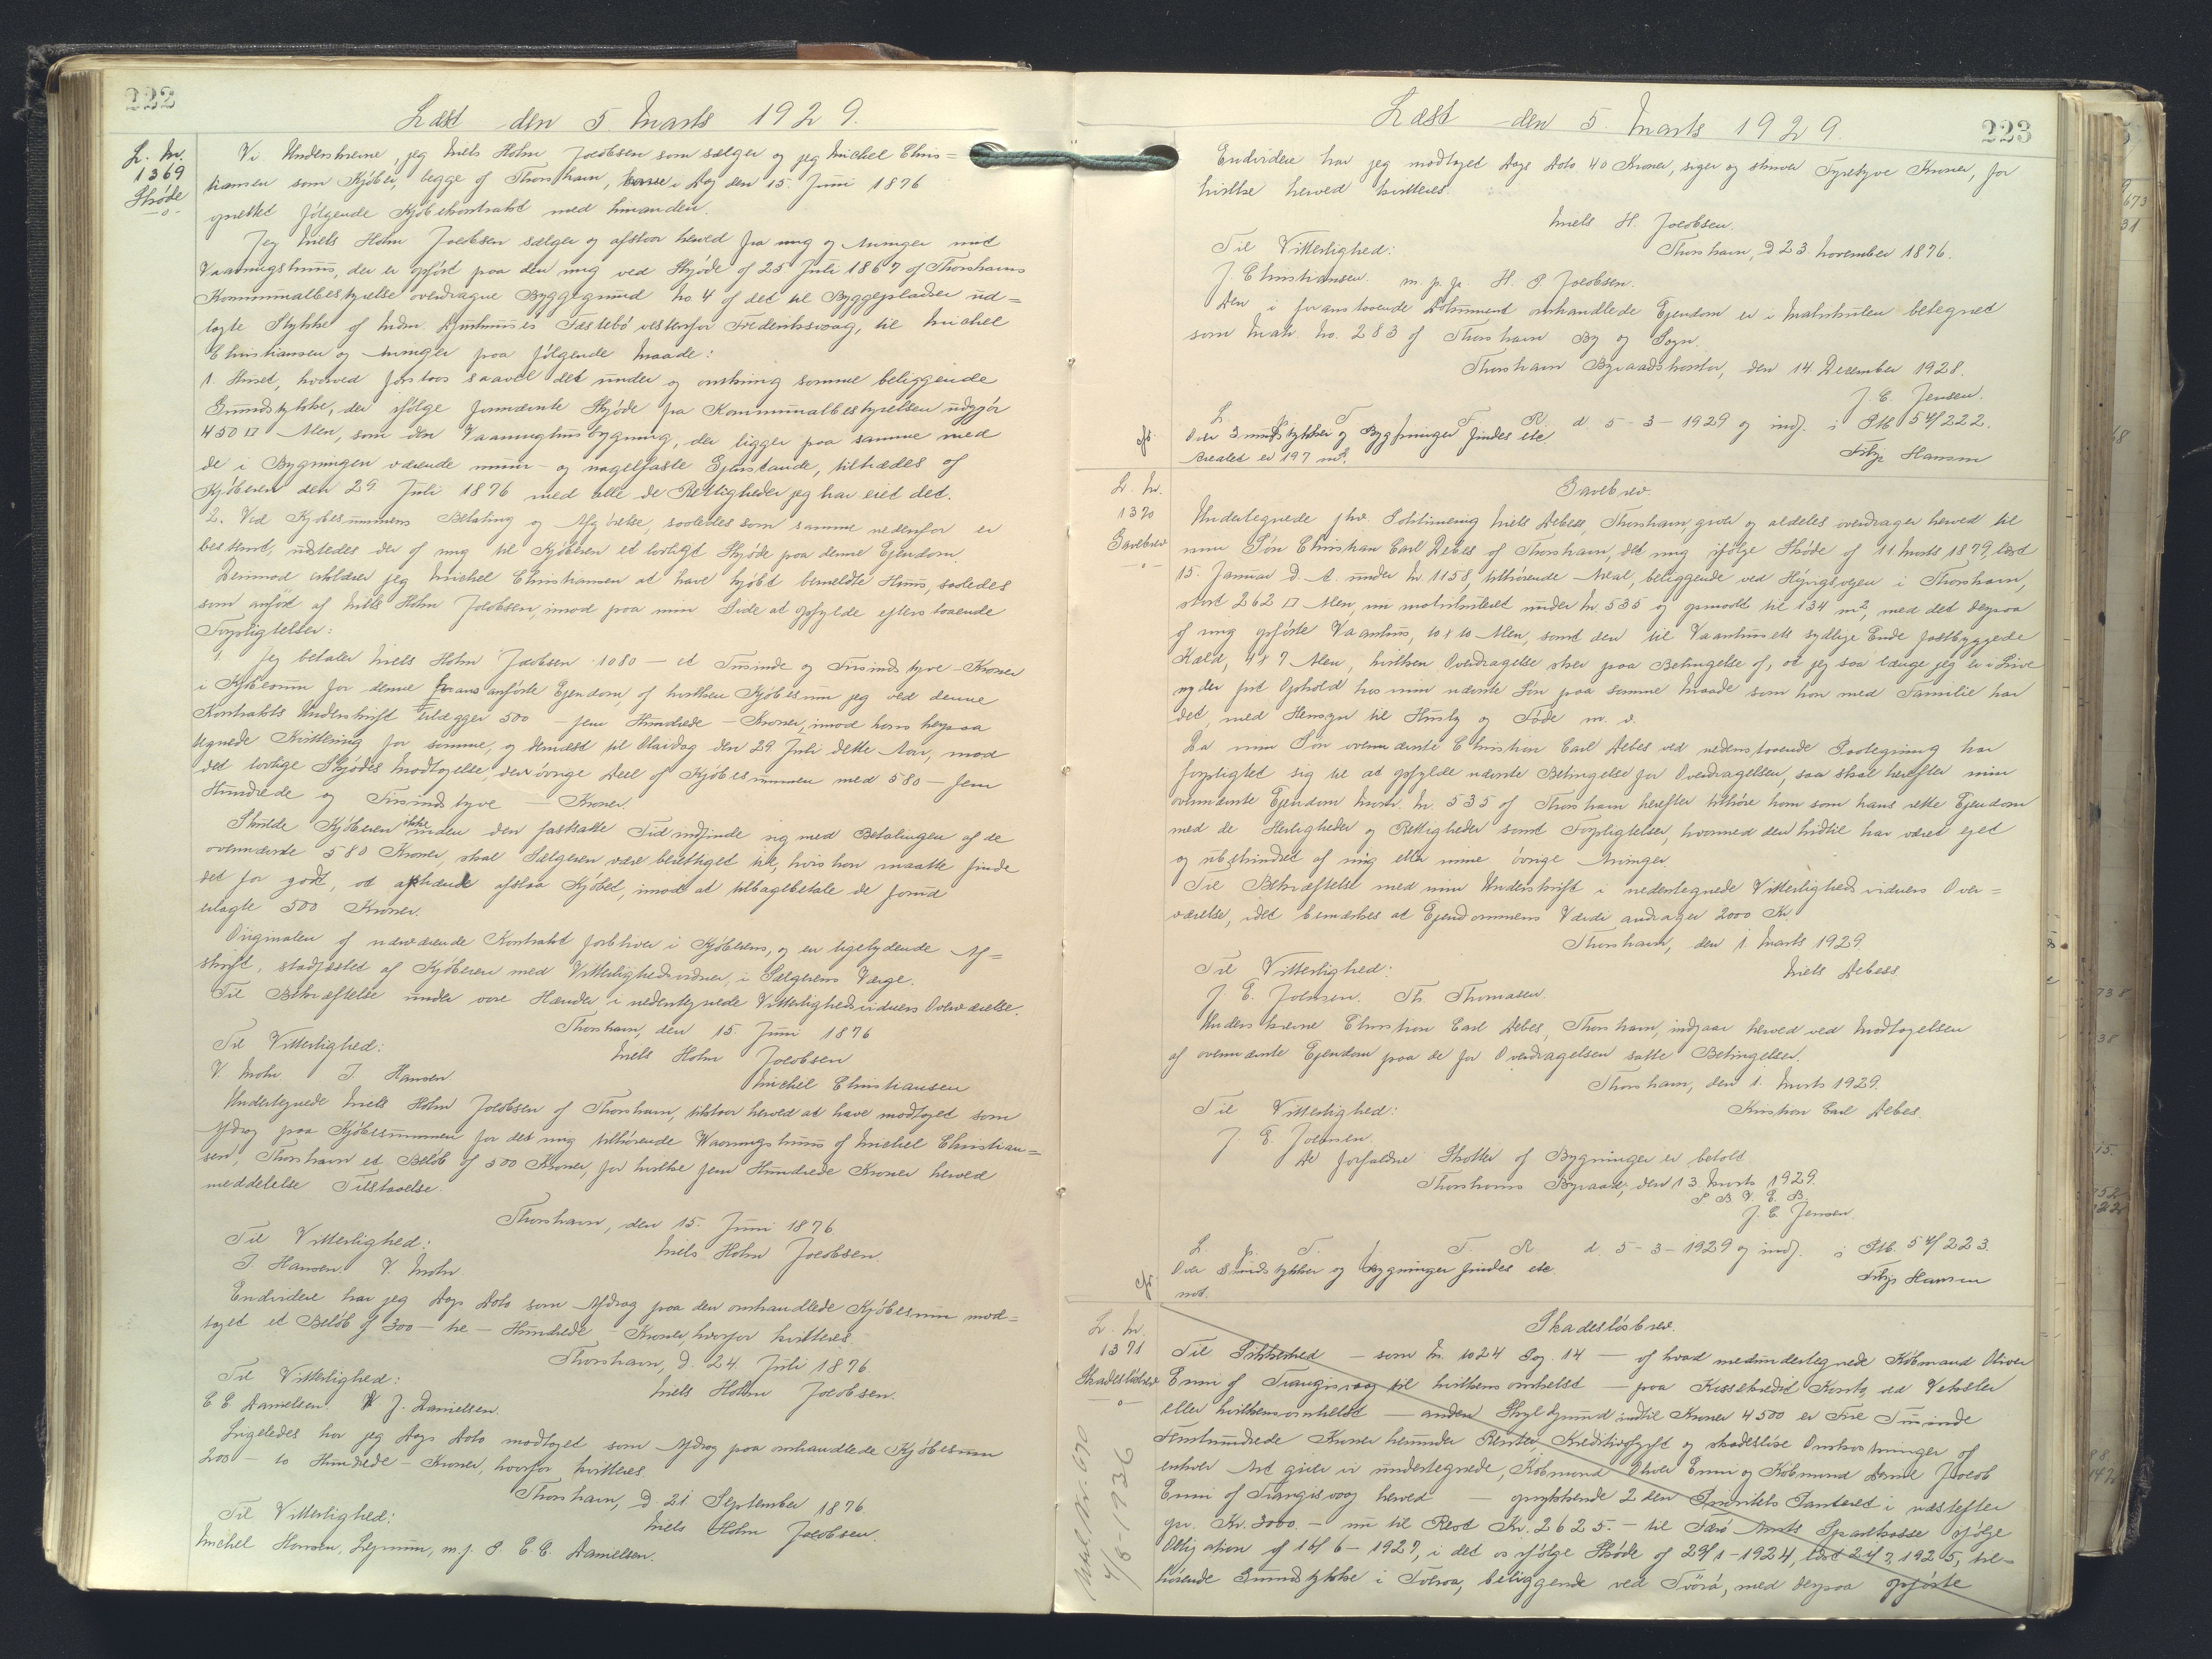 222
Læst den 5. Marts 1929.
L. Nr.
1369
Skøde
-o-
Vi Underskrevne, jeg Niels Holm Jacobsen som sælger og jeg Michel Chris=
tiansen som Kjøber, begge af Thorshavn, have i Dag den 15. Juni 1876
oprettet følgende Kjøbekontrakt med hinanden.
Jeg Niels Holm Jacobsen sælger og afstaar herved fra mig og Arvinger mit
Vaaningshuus, der er opført paa den mig ved Skjøde af 25 Juli 1867 af Thorshavns
Kommunalbestyrelse overdragne Byggegrund No 4 af det til Byggepladser ud=
lagte Stykke af Fæstebø vestenfor Frederiksvaag, til Michel
Christiansen og Arvinger paa følgende Maade:
1. Huset, hvorved forstaas saavel det under og omkring samme beliggende
Grundstykke, der ifølge fornævnte Skjøde fra Kommunalbestyrelsen udgjør
450 □ Alen, som den Vaaninghusbygning, der ligger paa samme med
de i Bygningen værende muur- og nagelfaste Gjenstande, tiltrædes af
Kjøberen den 29. Juli 1876 med alle de Rettigheder jeg har eiet det.
2. Ved Kjøbesummens Betaling og Afgjørelse, saaledes som samme nedenfor er
bestemt, udstedes der af mig til Kjøberen et lovligt Skjøde paa denne Ejendom.
Derimod erklærer jeg Michel Christiansen at have kjøbt bemeldte Huus, saaledes
som anført af Niels Holm Jacobsen, imod paa min Side at opfylde efterstaaende
Forpligtelser:
1. Jeg betaler Niels Holm Jacobsen 1080 - et Tusinde og Firsindstyve - Kroner
i Kjøbesum for denne foransanførte Ejendom, af hvilken Kjøbesum jeg ved denne
Kontrakts Underskrift erlægger 500 - fem Hundrede - Kroner, imod hans herpaa
tegnede Kvittering for samme, og dernæst til Olaidag den 29. Juli dette Aar, mod
det lovlige Skjødes Modtagelse, den øvrige Deel af Kjøbesummen med 580 - fem
Hundrede og Firsindstyve - Kroner.
Skulde Kjøberen ikke inden den fastsatte Tid indfinde sig med Betalingen af de
ovennævnte 580 Kroner, skal Sælgeren være berettiget til, hvis han maatte finde
det for godt, at afstaa Kjøbet, imod at tilbagebetale de forud
erlagte 500 Kroner.
Originalen af nærværende Kontrakt forbliver i Kjøberens, og en ligelydende Af=
skrift, stadfæstet af Kjøberen med Vitterlighedsvidner, i Sælgerens Værge.
Til Bekræftelse under vore Hænder i nedentegnede Vitterlighedsvidners Overværelse.
Thorshavn, den 15. Juni 1876
Til Vitterlighed: Niels Holm Jacobsen
V. Mohr J. Hansen. Michel Christiansen
Undertegnede Niels Holm Jacobsen af Thorshavn, tilstaar herved at have modtaget som
Afdrag paa Kjøbesummen for det mig tilhørende Waaningshuus af Michel Christian=
sen, Thorshavn et Beløb af 500 Kroner, for hvilke fem Hundrede Kroner herved
meddelelse Tilstaaelse.
Thorshavn, den 15. Juni 1876
Til Vitterlighed: Niels Holm Jacobsen.
J. Hansen. V. Mohr
Endvidere har jeg Dags Dato som Afdrag paa den omhandlede Kjøbesum mod=
taget et Beløb af 300 - tre - Hundrede - Kroner, hvorfor kvitteres
Thorshavn, d. 24. Juli 1876
Til Vitterlighed: Niels Holm Jacobsen.
E E Danielsen. J. Danielsen.
Ligeledes har jeg Dags Dato modtaget som Afdrag paa omhandlede Kjøbesum
200 - to Hundrede - Kroner, hvorfor kvitteres
Thorshavn, d 21. September 1876.
Til Vitterlighed: Niels Holm Jacobsen.
Michel Hansen, m. f. P. E. E. Danielsen.
223
Læst den 5. Marts 1929.
Endvidere har jeg modtaget Dags Dato 40 Kroner, siger og skriver Fyretyve Kroner, for
hvilke herved kvitteres.
Niels H. Jacobsen.
Til Vitterlighed: Thorshavn, d 23 November 1876.
J. Christiansen. m. p. p. H. P. Jacobsen.
Den i foranstaaende Dokument omhandlede Ejendom er i Matrikulen betegnet
som Matr. No. 283 af Thorshavn By og Sogn.
Thorshavn Byraadskontor, den 14 December 1928.
J. C. Jensen.
L. T. F. R. d 5-3-1929 og indf. i Ptb 54/222.
Over Grundstykker og Bygninger findes etc
Arealet er 197 m².
Filip Hansen
L. Nr.
1370
Gavebrev
-o-
Gavebrev.
Undertegnede fhv. Niels Debess, Thorshavn, giver og aldeles overdrager herved til
min Søn Christian Carl Debes af Thorshavn, det mig ifølge Skøde af 11. Marts 1879, læst
15. Januar d. A. under Nr. 1158, tilhørende Areal, beliggende ved Hýngsvejen i Thorshavn,
stort 262 □ Alen, nu matrikuleret under Nr. 535 og opmaalt til 134 m², med det derpaa
af mig opførte Vaanhus, 10 x 10 Alen, samt den til Vaanhusets sydlige Ende fastbyggede
Kæld, 4 x 7 Alen, hvilken Overdragelse sker paa Betingelse af, at jeg saa længe jeg er i Live
nyder frit Ophold hos min nævnte Søn paa samme Maade som han med Familie har
det, med Hensyn til Husly og Føde m. v.
Da min Søn ovennævnte Christian Carl Debes ved nedenstaaende Paategning har
forpligtet sig til at opfylde nævnte Betingelse for Overdragelsen, saa skal herefter min
ovennævnte Ejendom Matr. Nr. 535 af Thorshavn herefter tilhøre ham som hans rette Ejendom
med de Herligheder og Rettigheder samt Forpligtelser, hvormed den hidtil har været ejet
og ubehindret af mig eller mine øvrige Arvinger.
Til Bekræftelse med min Underskrift i nedentegnede Vitterlighedsvidners Over=
værelse, idet bemærkes at Ejendommens Værdi andrager 2000 Kr.
Thorshavn, den 1. Marts 1929.
Til Vitterlighed: Niels Debess
J. E. Joensen. Th. Thomasen.
Underskrevne Christian Carl Debes, Thorshavn, indgaar herved ved Modtagelsen
af ovennævnte Ejendom paa de for Overdragelsen satte Betingelser.
Thorshavn, den 1. Marts 1929.
Til Vitterlighed: Kristian Carl Debes.
J. E. Joensen.
De forfaldne Skatter af Bygninger er betalt.
Thorshavns Byraad, den 13 Marts 1929.
P. B. V. E. B.
J. C. Jensen.
L. p. T. f. T. R. d. 5-3-1929 og indf. i Ptb. 54/223.
Over Grundstykker og Bygninger findes etc
not.
Filip Hansen
L. Nr.
1371
Skadesløsbrev
-o-
Skadesløsbrev.
Til Sikkerhed - som Nr. 1024 Pag. 14 - af hvad medundertegnede Købmand Oliver
Enni af Trangisvaag til hvilkensomhelst - paa Kassekredit Konto, ved Veksler
eller hvilkensomhelst - anden Skyldgrund indtil Kroner 4500 er Fire Tusinde
Femhundrede Kroner herunder Renter, Kreditivafgift og skadesløse Omkostninger af
enhver Art giver vi undertegnede, Købmand Oliver Enni og Købmand Jacob
Enni af Trangisvaag herved - oprykkende 2 den Prioritets Panteret i næstefter
opr. Kr. 3000. - nu til Rest Kr. 2625. - til Færø Amts Sparekasse ifølge
Obligation af 16/6 - 1927, i det os ifølge Skøde af 29/1 - 1924, læst 1925, til=
hørende Grundstykke i Tveraa, beliggende ved Tvörá, med derpaa opførte
4/8-1936